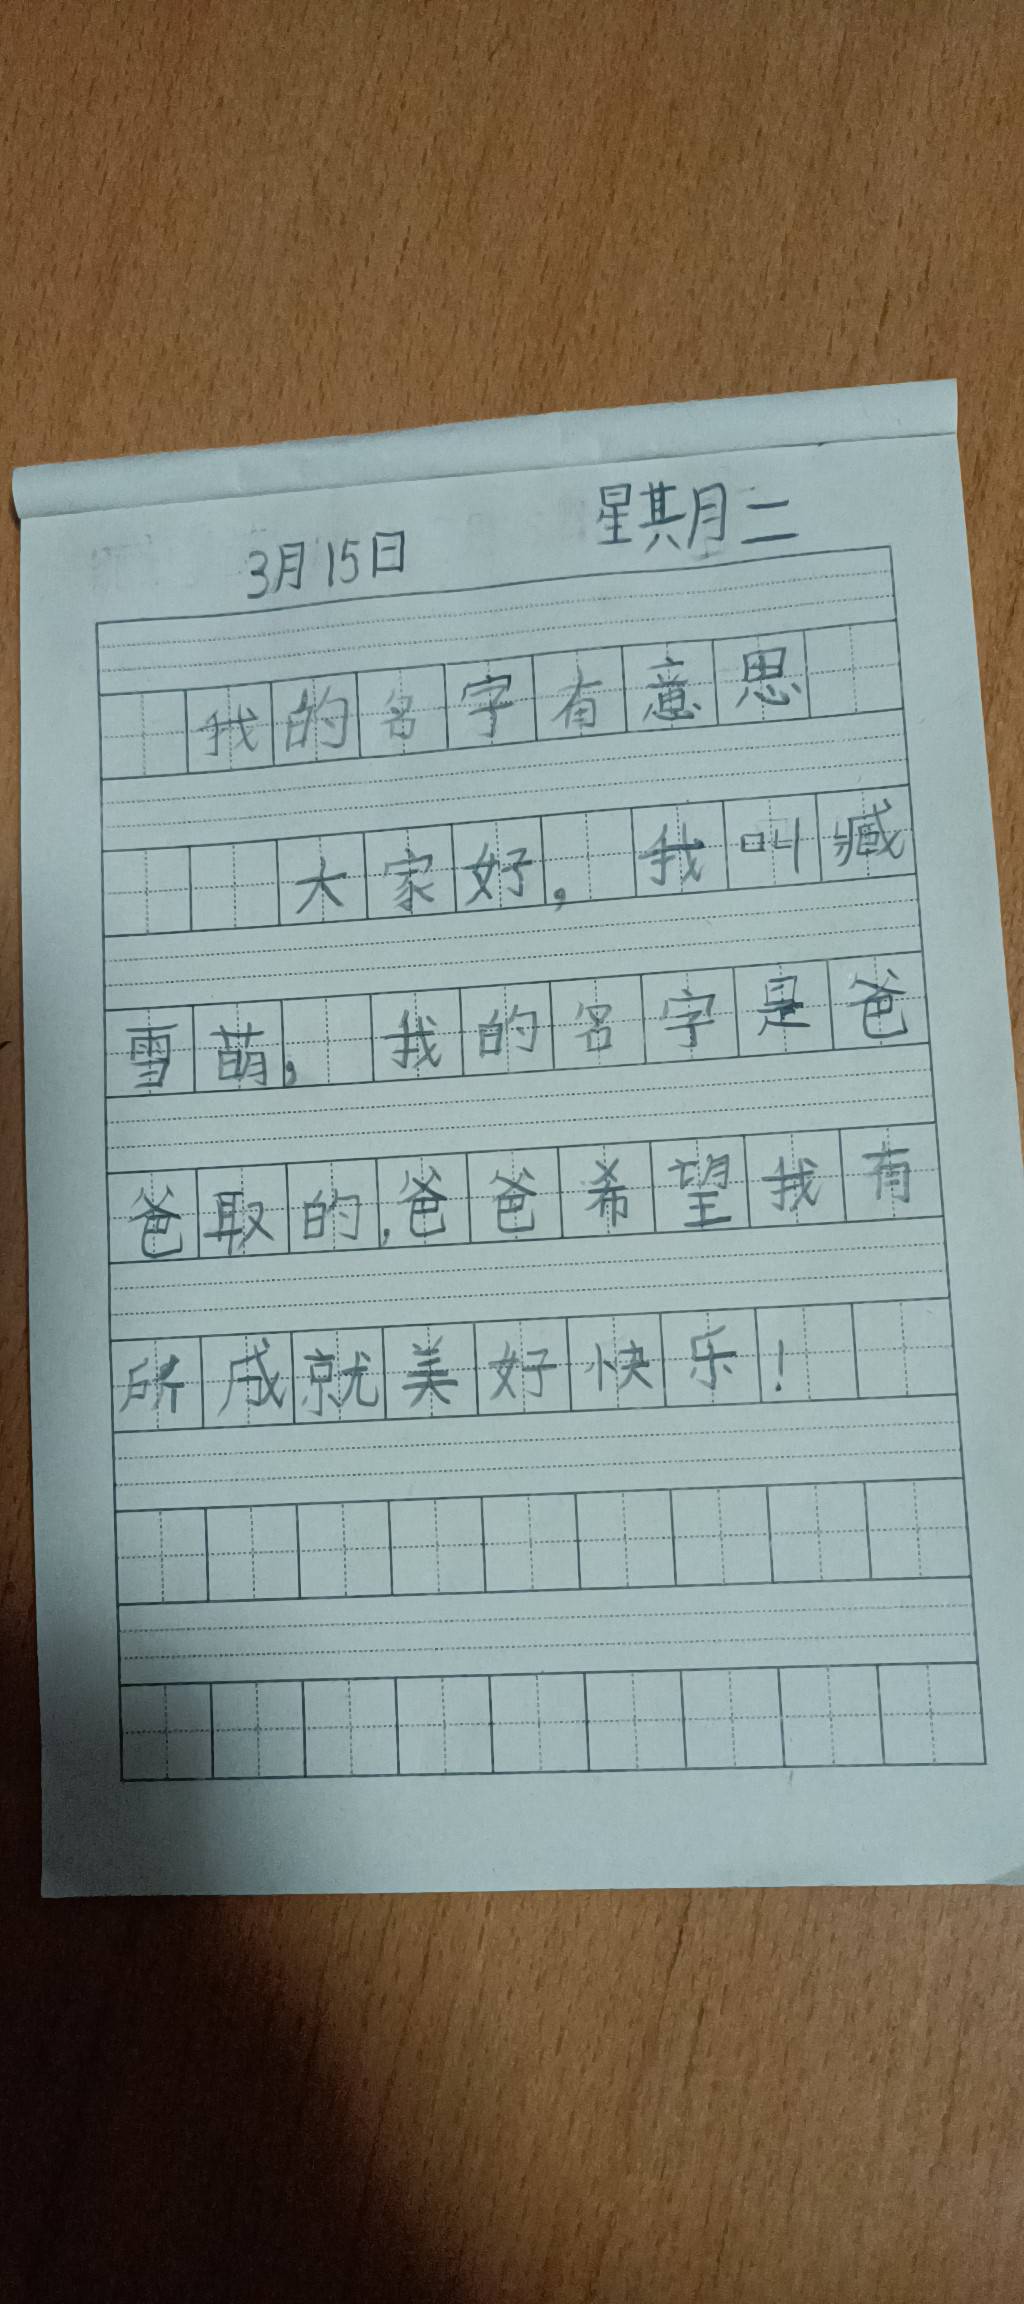 3月15日 星期二
我的名字有意思
大家好，我叫臧
雪萌，我的名字是爸
爸取的，爸爸希望我有
所成就美好快乐！